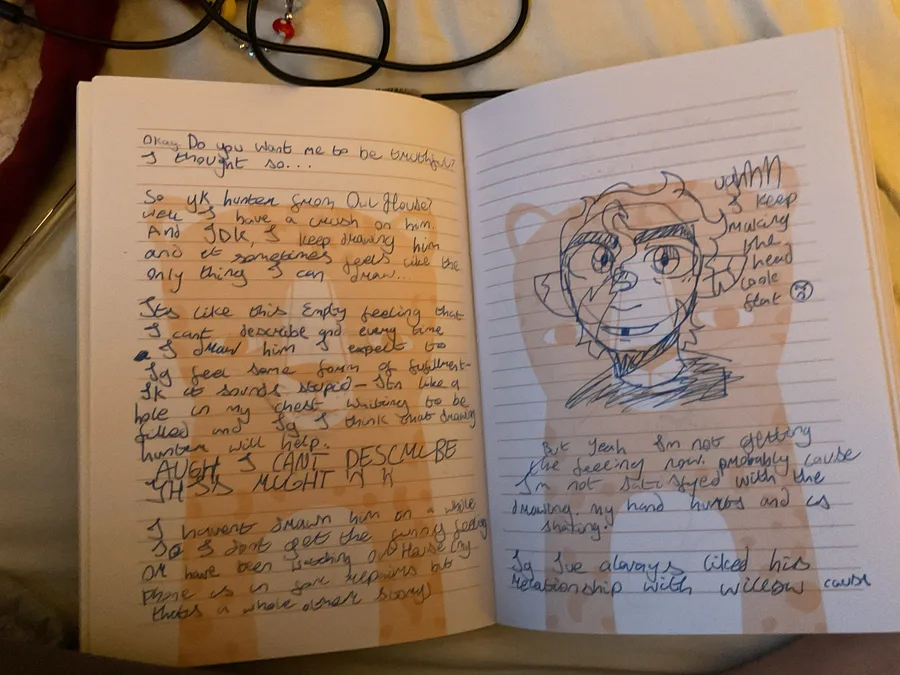 Okay Do you want me to be truthful?
I thought so...
So yk hunter from Owl House?
well I have a crush on him
And IDK, I keep drawing him
and it sometimes feels like the
only thing I can draw.
Its like this Empty feeling that
I cant describe and every time
I draw him I expect to
Ig feel some form of fulfilment-
IK it sounds stupid- Its like a
hole in my chest waiting to be
filled and Ig I think that drawing
hunter will help.
AUGH I CANT DESCRIBE
THIS RIGHT
I havent drawn him in a while
so I dont get the funny feeling
or have been watching Owl House (my
phone is in for repairs but
thats a whole other story)
ughhh
I keep
making
the
head
look
flat
But yeah Im not getting
the feeling now. probably cause
I'm not satisfyed with the
drawing. my hand hurts and is
shaking.
Ig Ive always liked his
relationship with willow cause